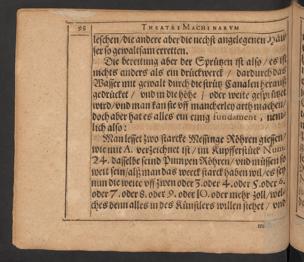 98 THEATRI MACHINARVM
leschen / die andere aber die nechst angelegenen Häu
ser so gewaltsam erretten.
Die bereitung aber der Sprützen ist also / es ist
nichts anders als ein drückwerck / dardurch das
Wasser mit gewalt durch die
gedrücket / vnd in die höhe / oder weite gesprützet
wird / vnd man kan sie vff mancherley arth machen /
doch aber hat es alles ein einig fundament, nem
lich also:
Man lesset zwo starcke Messinge Röhren giessen /
wie mit A. verzeichnet ist / im Kupfferstück Num.
24. dasselbe seind Pumpen Röhren / vnd müssen so
weit sein / als man das werck starck haben wil / es sey
nun die weite vff zwen oder 3. oder 4. oder 5. oder 6.
oder 7. oder 8. oder 9. oder 10. oder mehr zoll / wel-
ches denn alles in des Künstlers willen stehet / vnd